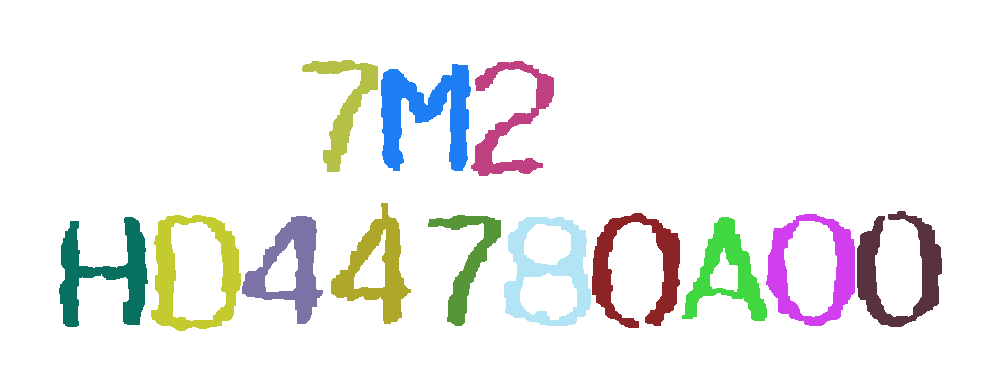 7M2
HD44780A00